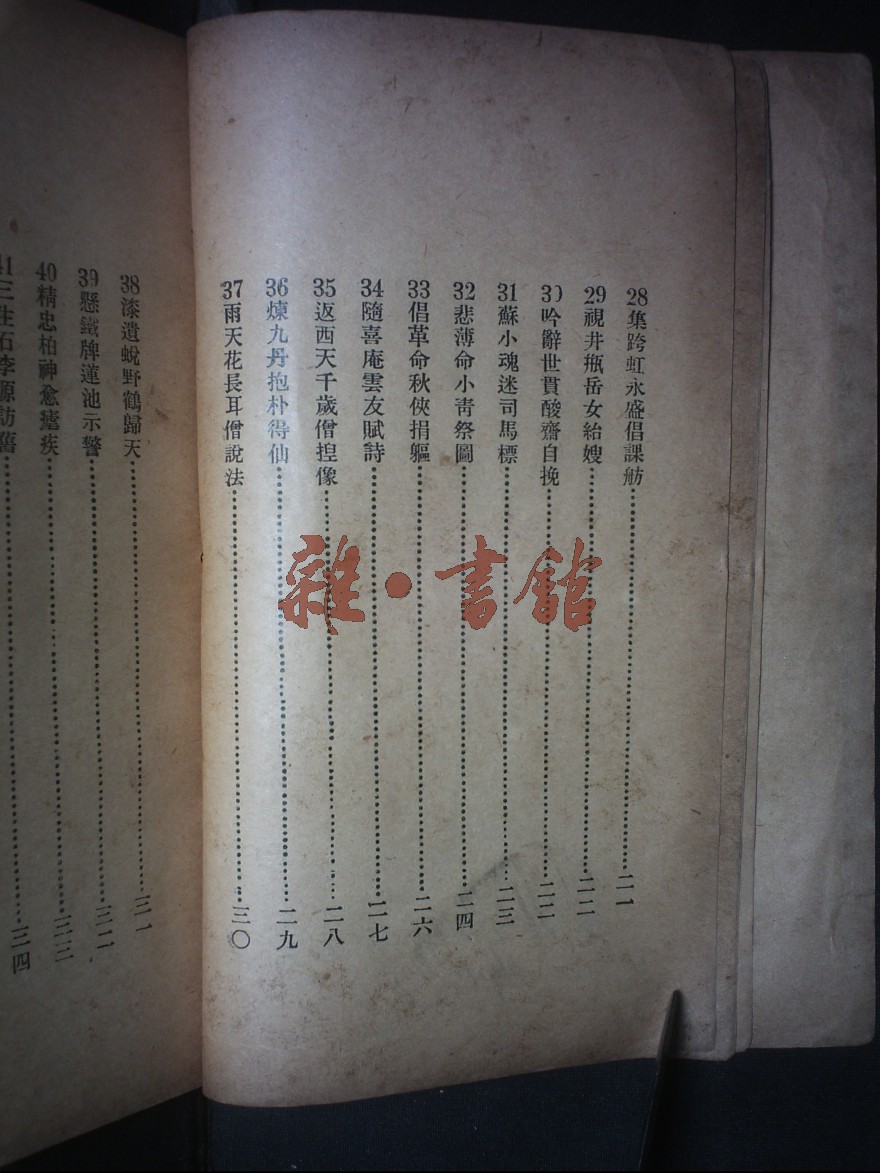 28集跨虹永盛倡課舫……二一
29視井瓶岳女紿嫂……二二
30吟辭世貫酸齋自挽……二二
31蘇小魂迷司馬標……二三
32悲薄命小靑祭圖……二四
33倡革命秋俠捐軀……二六
34隨喜庵雲友賦詩……二七
35返西天千歲僧揑像……二八
36煉九丹抱朴得仙……二九
37雨天花長耳僧說法……三〇
38漆遺蛻野鶴歸天……三一
39懸鐵牌蓮池示警……三二
40精忠柏神愈瘧疾……三三
41三生石李源訪舊……三四
雜·書館